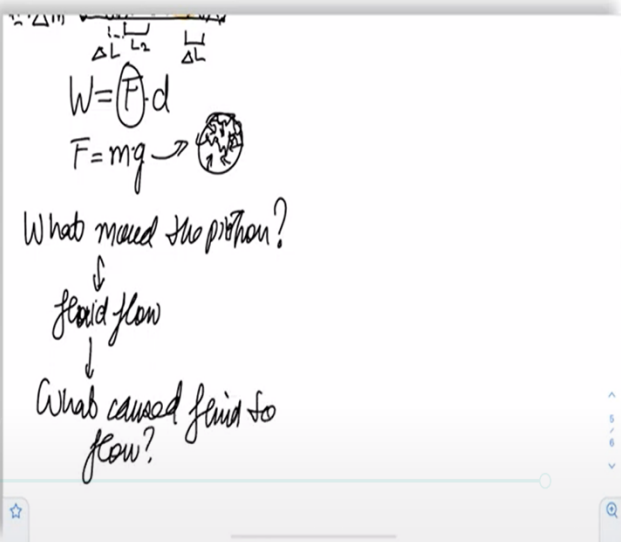 L₂
ΔL ΔL
W=F·d
F=mg
What moved the piston?
fluid flow
What caused fluid to
flow?
5
/
6